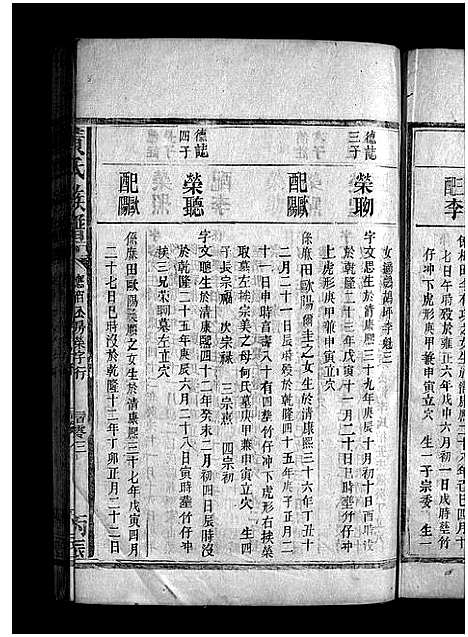 配李
七日午時歿於雍正六年戊申十月初一日戌時葬竹
仔冲下虎形庚甲兼申寅立穴 生一子宗委 生一
女適鵝頸坪李魁三
德龍
三子
榮聊
字文思生於清康熙三十九年庚辰十月初十日酉時沒
於乾隆三十三年戊寅十一月二十日巳時葬竹仔冲
上虎形庚甲兼申寅立穴
配歐
係麻田歐陽爾圭之女生於清康熙三十六年丁丑十
二月二十一日辰時歿於乾隆四十五年庚子正月二
十一日申時高壽八十有四葬竹仔冲下虎形右挾榮
取墓左挾宗美之母何氏墓庚甲兼申寅立穴 生四
子長宗禰 次宗祿 三宗燕 四宗初
德龍
四子
榮聽
字文聰生於清康熙四十二年癸未二月初四日辰時沒
於乾隆二十五年庚辰六月二十八日寅時葬竹仔冲
挾三兄榮聊墓左立穴
配歐
係麻田歐陽熙之女生於清康熙三十七年戊寅四月
二十七日巳時沒於乾隆十二年丁卯正月二十二日
黃氏族譜